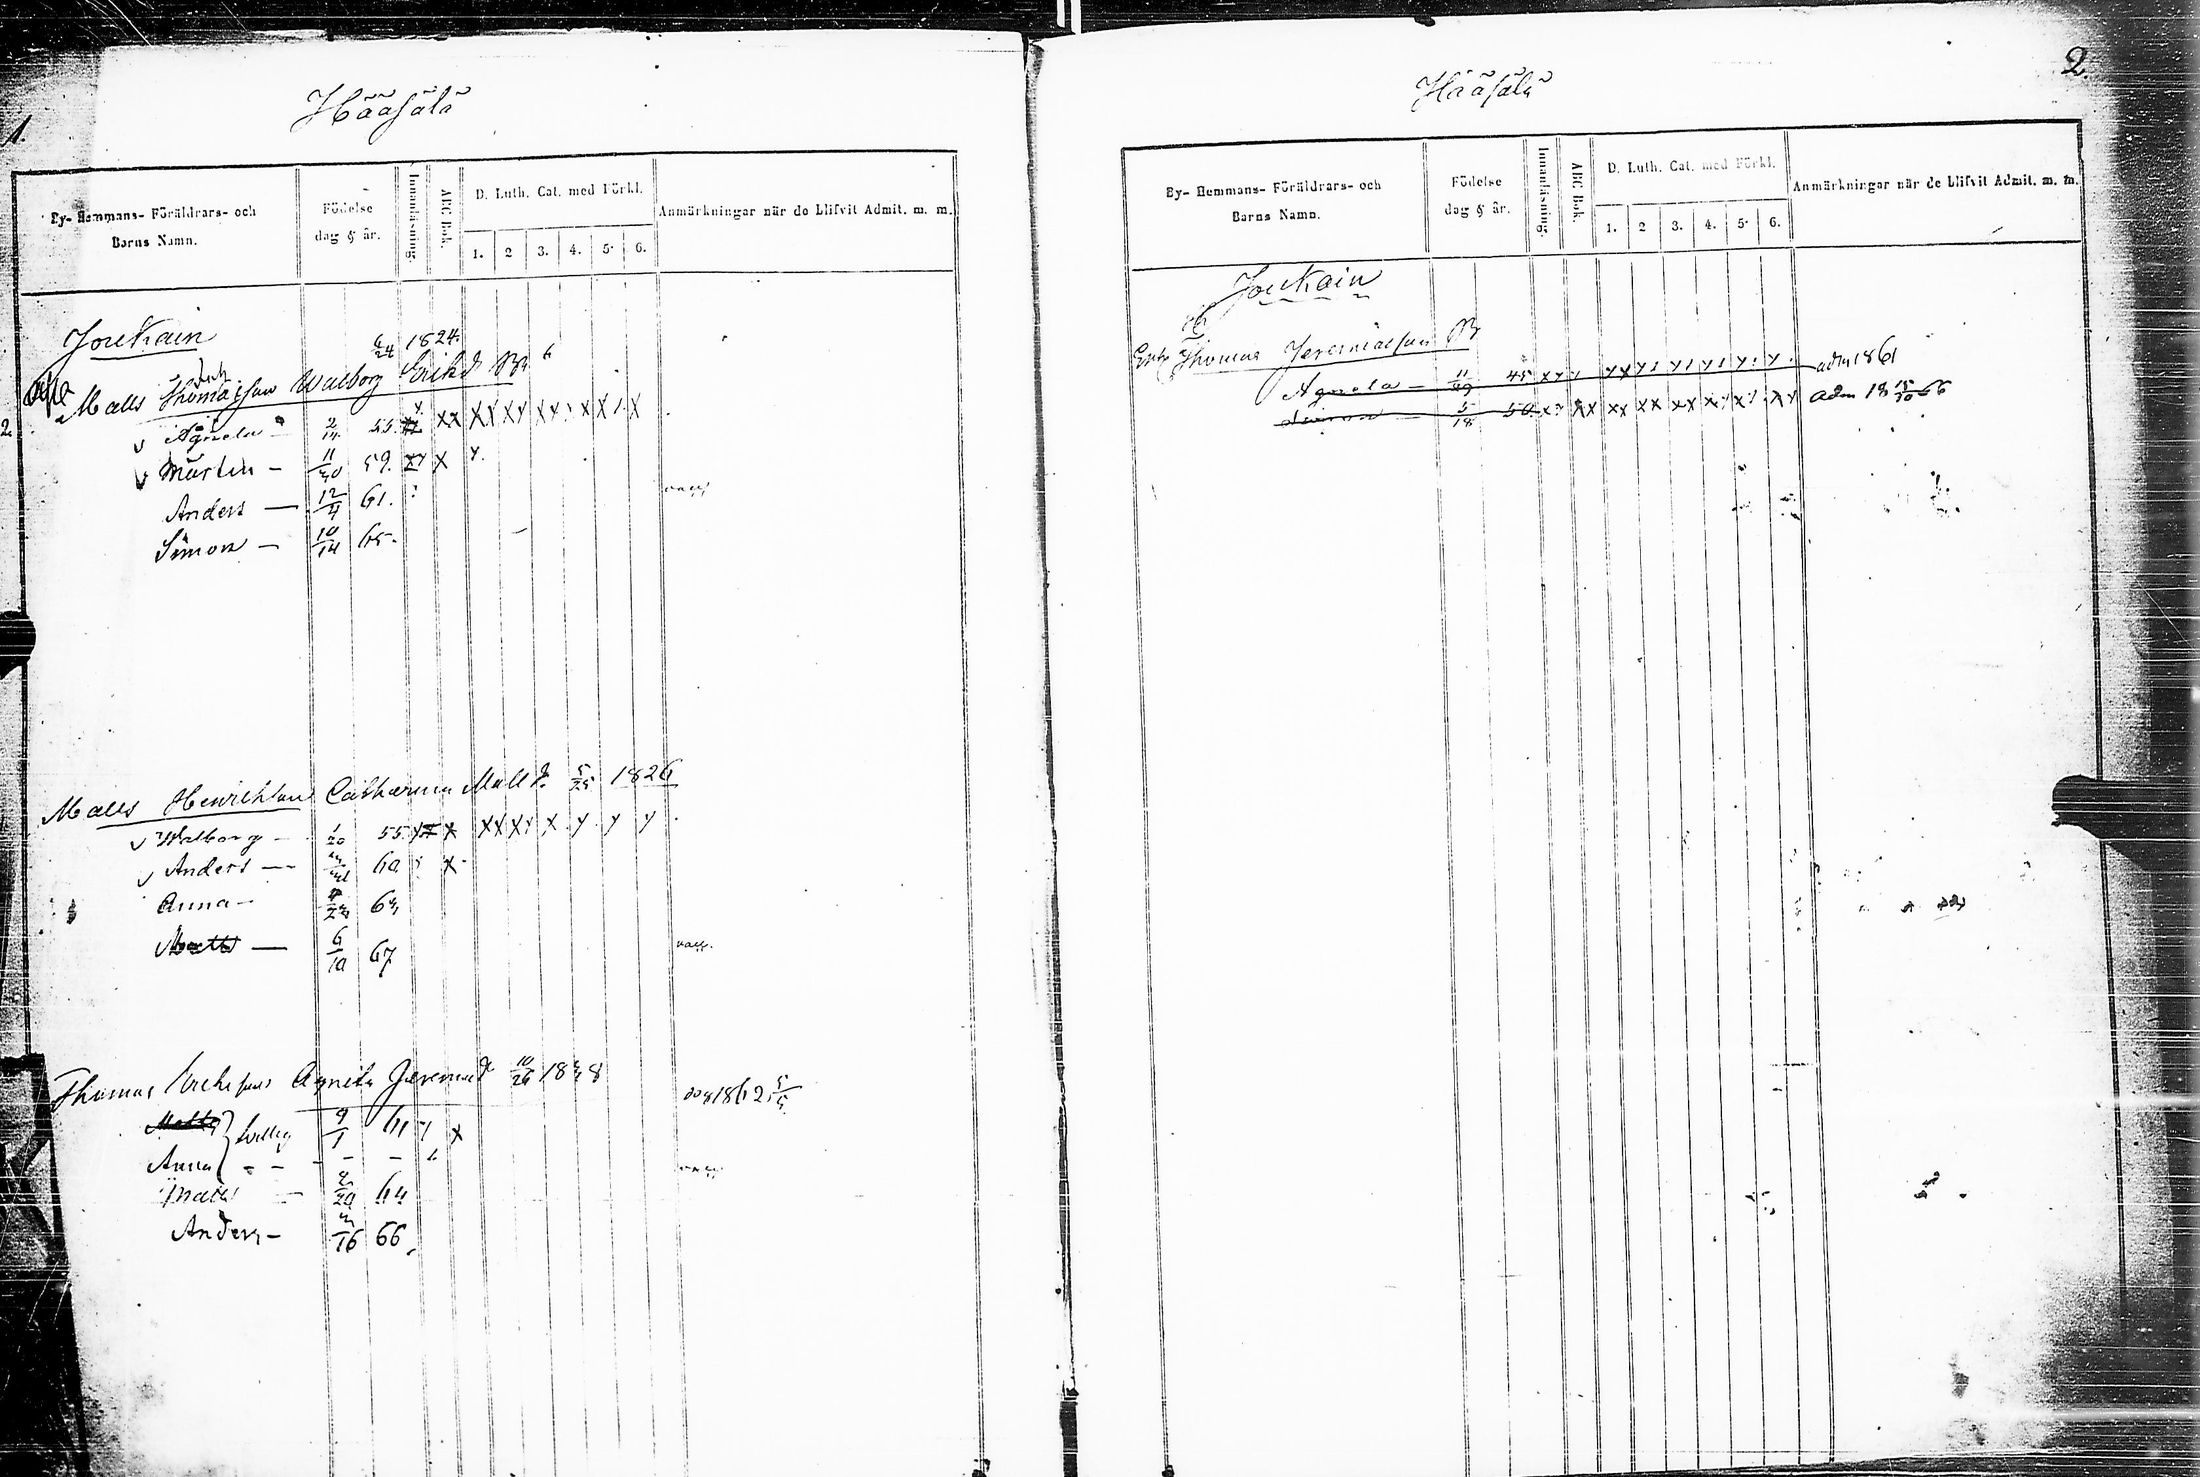 1.
Hääsälä
By- Hemmans- Föräldrars- och Barns Namn.
Födelse dag & år.
Innanläsning.
ABC Bok.
D. Luth. Cat. med Förkl.
1. 2 3. 4. 5. 6.
Anmärkningar när de blifvit Admit. m. m.
Joukain
6/24 1824.
Matts Thomasson Walborg Eriksd
2. Agneta 2/14 55. xx xx xx xx x x x
Martin — 11/30 59. xy x y.
Anders — 12/4 61.
Simon — 10/14 65.
Matts Henrikson Catharina Mattsd. 5/25 1826
Walborg — 1/20 55 x xx xx x y y y
Anders — 60 x
Anna — 63
Matts — 6/10 67
vacc.
Thomas Erikson Agneta Jeremiæd 10/26 1838
Matts } tvilling 9/1 61 x
död 1862 5/5
Anna } - - - -
vacc.
Matts — 2/20 64
Anders — 3/16 66
2.
Hääsälä
By- Hemmans- Föräldrars- och Barns Namn.
Födelse dag & år.
Innanläsning.
ABC Bok.
D. Luth. Cat. med Förkl.
1. 2 3. 4. 5. 6.
Anmärkningar när de blifvit Admit. m. m.
Joukain
Enk Thomas Jeremiæson
Agneta — 11/29 45 xy y yx y y y y y adm 1861
Simon — 5/18 50 xy xx xx xx xx xy xy xy adm 18 15/10 66